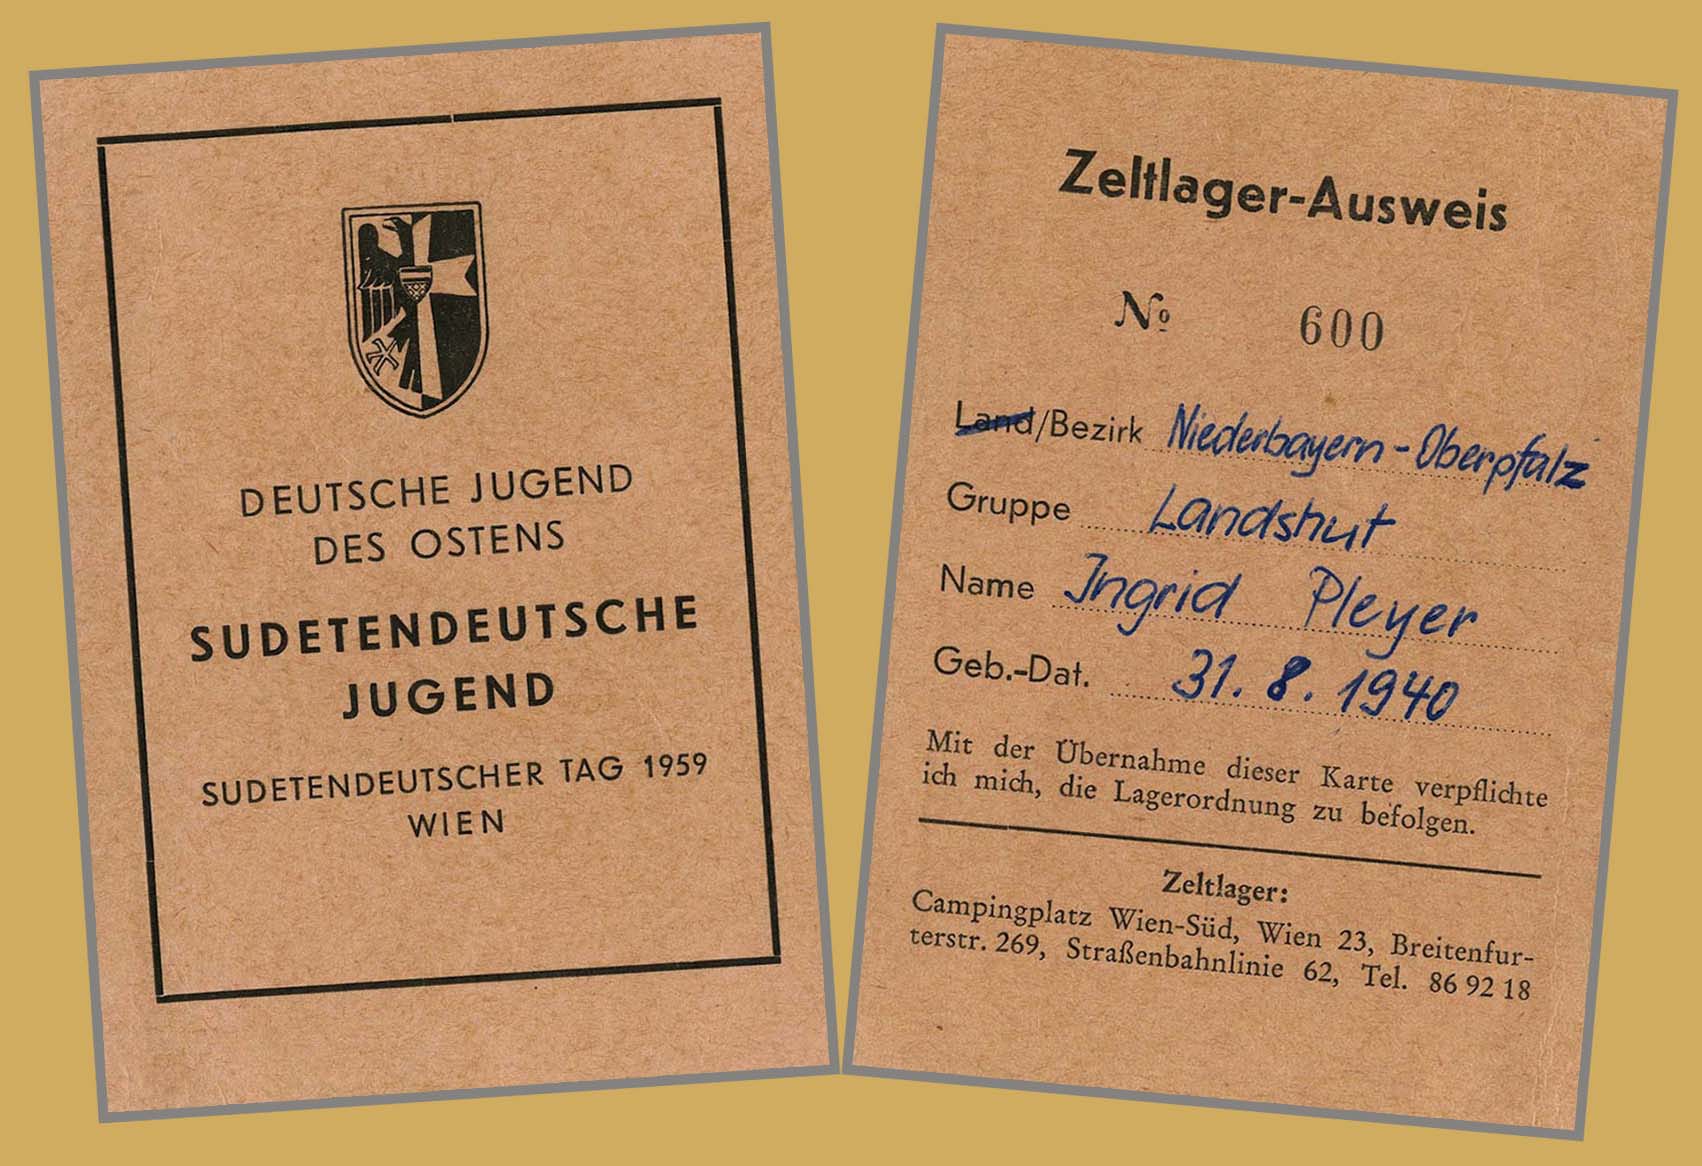 DEUTSCHE JUGEND
DES OSTENS
SUDETENDEUTSCHE
JUGEND
SUDETENDEUTSCHER TAG 1959
WIEN
Zeltlager-Ausweis
№ 600
Land/Bezirk Niederbayern-Oberpfalz
Gruppe Landshut
Name Ingrid Pleyer
Geb.-Dat. 31. 8. 1940
Mit der Übernahme dieser Karte verpflichte
ich mich, die Lagerordnung zu befolgen.
Zeltlager:
Campingplatz Wien-Süd, Wien 23, Breitenfur-
terstr. 269, Straßenbahnlinie 62, Tel. 86 92 18